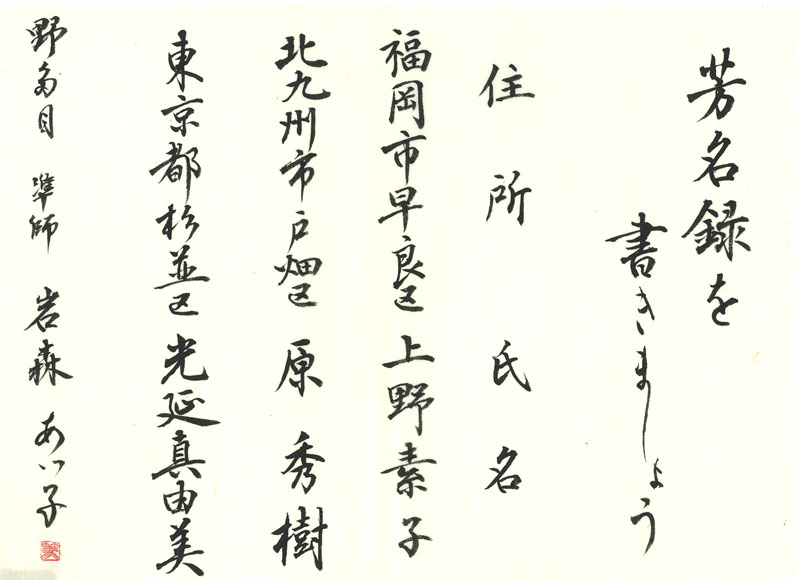 芳名録を
書きましょう
住所 氏名
福岡市早良区 上野素子
北九州市戸畑区 原秀樹
東京都杉並区 光延真由美
野多目 準師 岩森 あい子